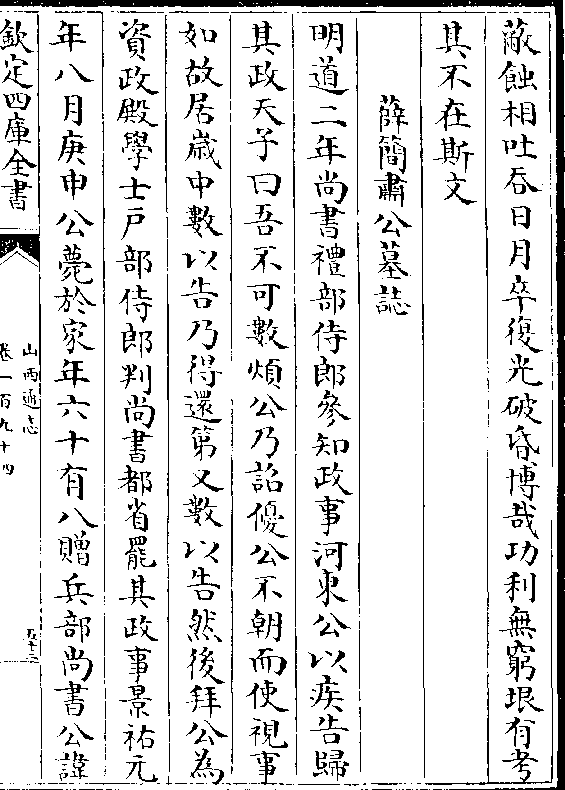 蔽蝕相吐吞日月卒復光破昏博哉功利無窮垠有考
其不在斯文
薛簡肅公墓誌
明道二年尚書禮部侍郎參知政事河東公以疾告歸
其政天子曰吾不可數煩公乃詔優公不朝而使視事
如故居歲中數以告乃得還第又數以告然後拜公為
資政殿學士戶部侍郎判尚書都省罷其政事景祐元
年八月庚申公薨於家年六十有八贈兵部尚書公諱
欽定四庫全書
山西通志
卷一百九十四
五十三